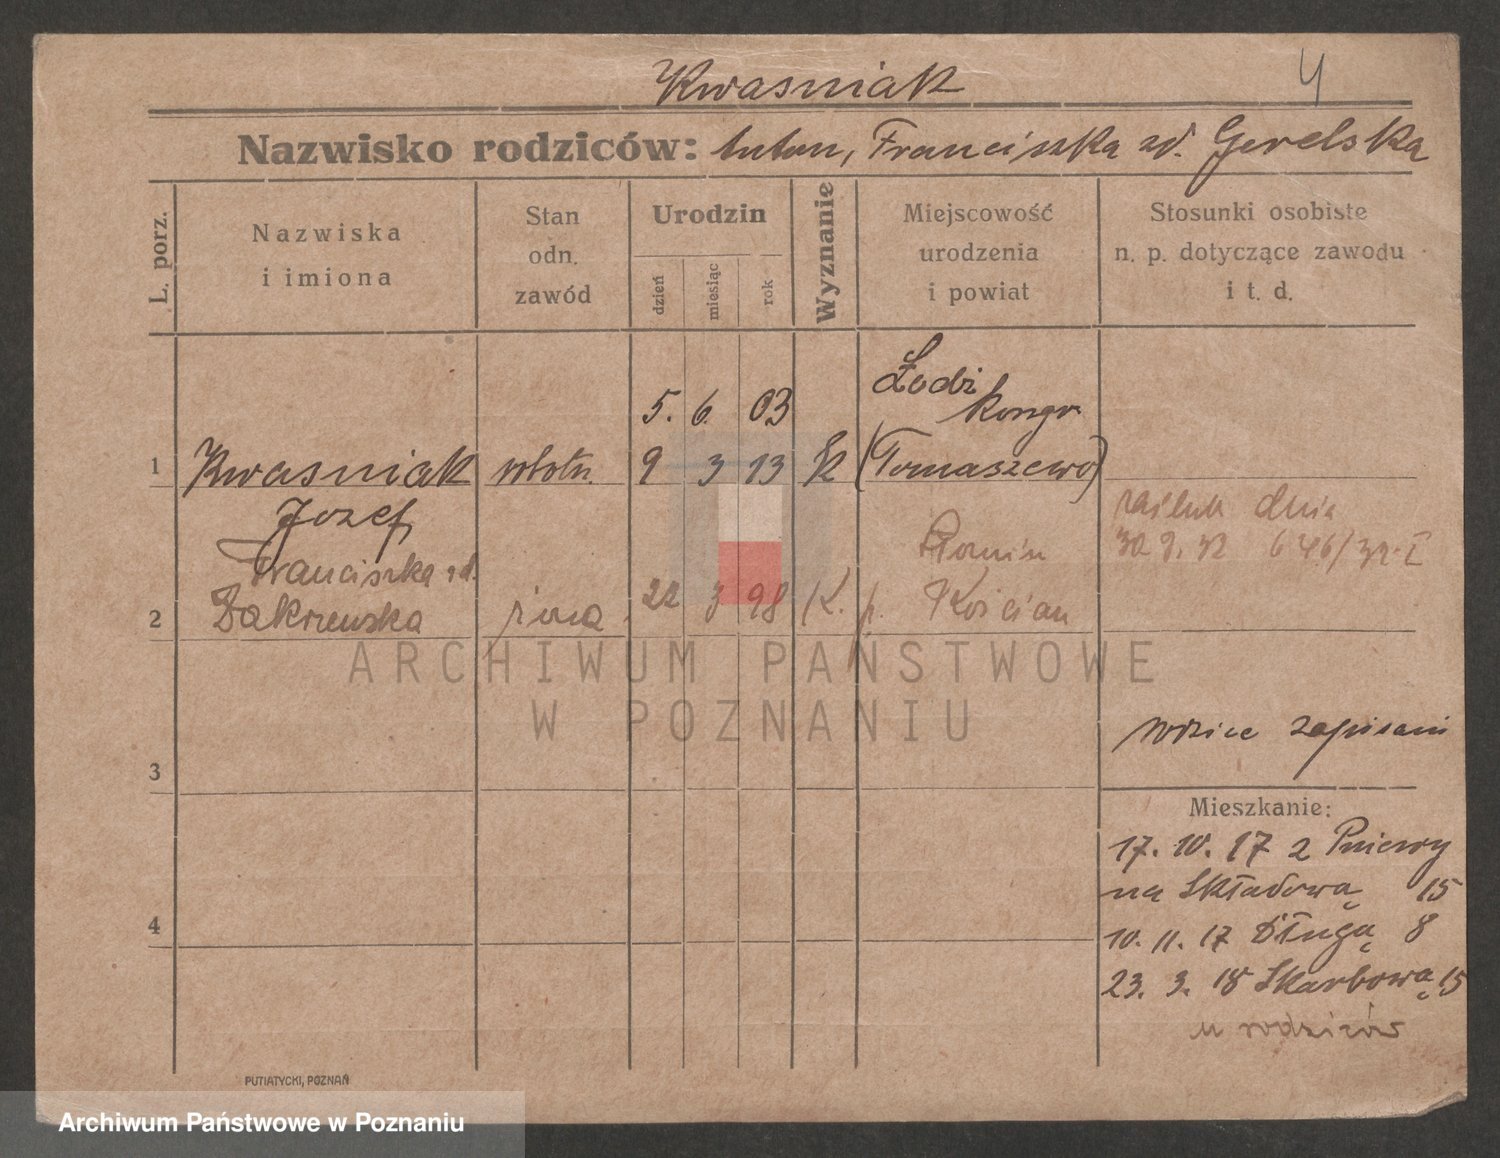 Kwasniak
4
Nazwisko rodziców: Anton, Franciszka zd. Gorelska
L. porz.
Nazwiska
i imiona
Stan
odn.
zawód
Urodzin
dzień
miesiąc
rok
Wyznanie
Miejscowość
urodzenia
i powiat
Stosunki osobiste
n. p. dotyczące zawodu
i t. d.
Łodzi
5. 6. 03 kongr
1 Kwasniak robotn. 9 3 13 K (Tomaszewo)
Jozef
zaślub dnia
Franciszka zd. 30 9. 32 646/32. I
2 Zakrzewska żona 22 3 98 K. p. Kościan
ARCHIWUM PAŃSTWOWE
W POZNANIU
rodzice zapisani
3
Mieszkanie:
17. 10. 17 z Pniewy
na Składową 15
4
10. 11. 17 Długą 8
23. 3. 18 Skarbową 15
u rodziców
PUTIATYCKI, POZNAŃ
Archiwum Państwowe w Poznaniu